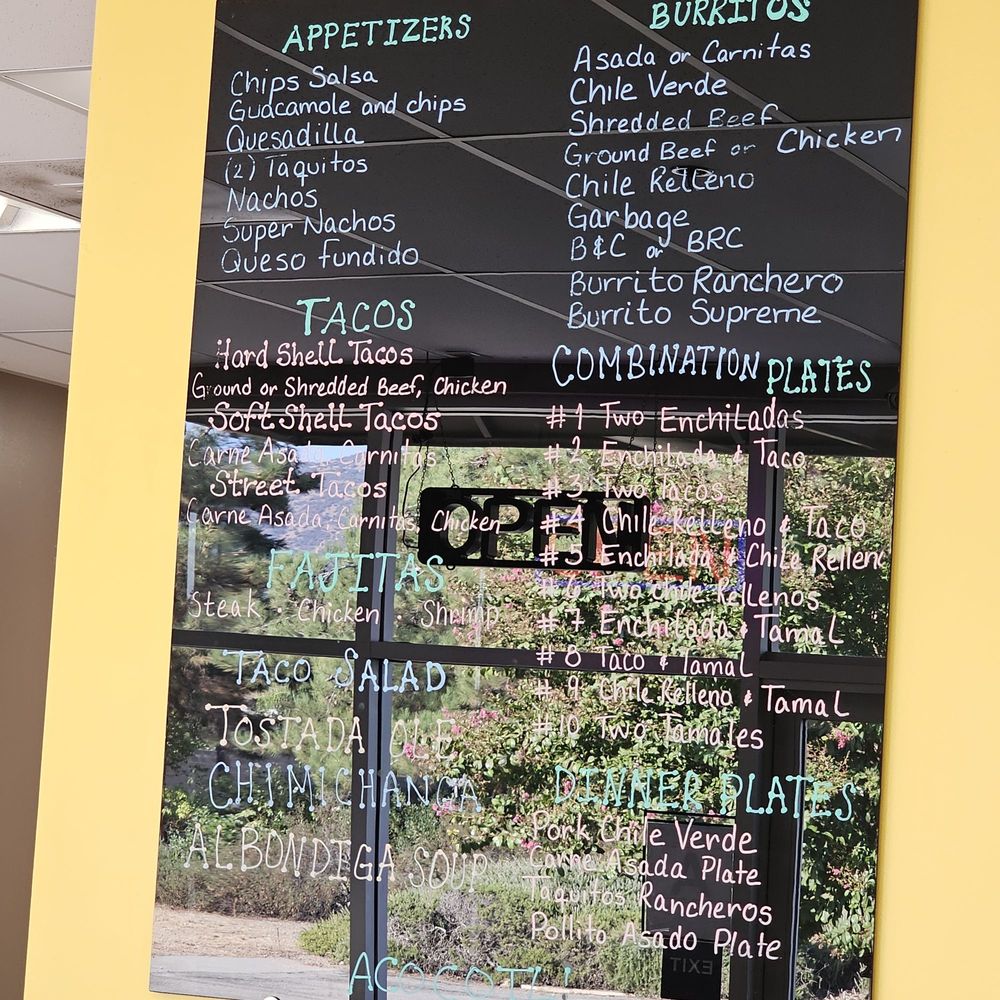 APPETIZERS
Chips Salsa
Guacamole and chips
Quesadilla
(2) Taquitos
Nachos
Super Nachos
Queso fundido
TACOS
Hard Shell Tacos
Ground or Shredded Beef, Chicken
Soft Shell Tacos
Carne Asada, Carnitas
Street Tacos
Carne Asada, Carnitas, Chicken
FAJITAS
Steak · Chicken · Shrimp
TACO SALAD
TOSTADA OLE
CHIMICHANGA
ALBONDIGA SOUP
BURRITOS
Asada or Carnitas
Chile Verde
Shredded Beef
Ground Beef or Chicken
Chile Relleno
Garbage
B&C or BRC
Burrito Ranchero
Burrito Supreme
COMBINATION PLATES
#1 Two Enchiladas
#2 Enchilada & Taco
#3 Two Tacos
#4 Chile Relleno & Taco
#5 Enchilada & Chile Relleno
#6 Two chile Rellenos
#7 Enchilada & Tamal
#8 Taco & Tamal
#9 Chile Relleno & Tamal
#10 Two Tamales
DINNER PLATES
Pork Chile Verde
Carne Asada Plate
Taquitos Rancheros
Pollito Asado Plate
OPEN
EXIT